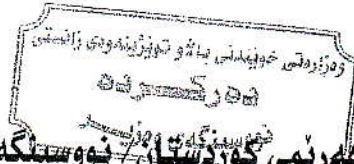 وەزارەتی خوێندنی باڵا و توێژینەوەی زانستی
دەرکــــــردە
نووسینگەی وەزیــــــر
هەرێمی کوردستان / نووسینگە